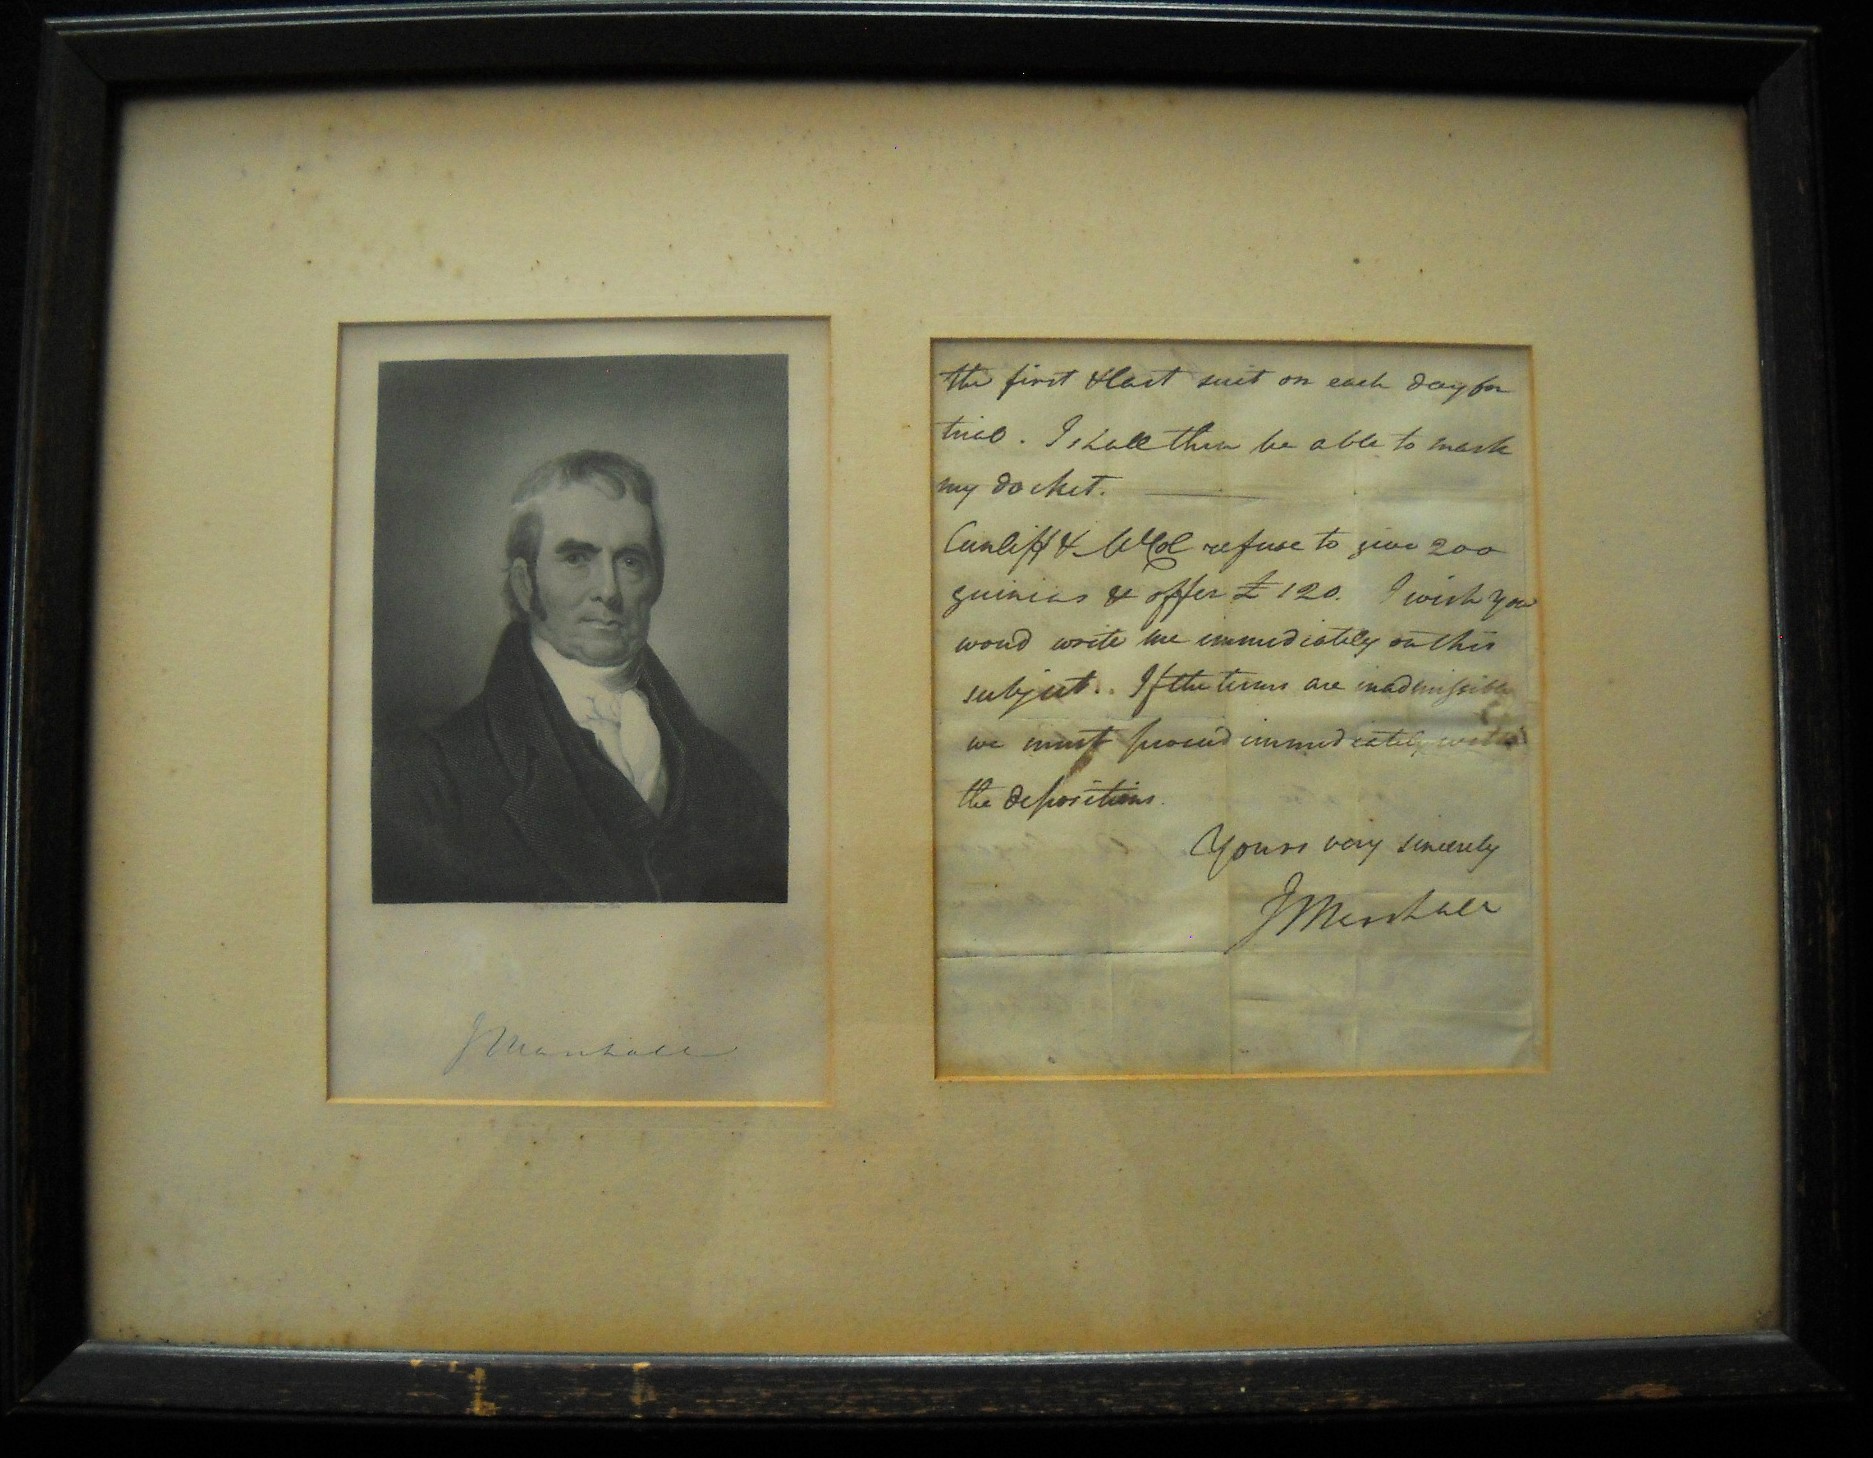 J Marshall
the first & last suit on each day for
trial. I shall then be able to mark
my docket.
Cunliff & refuse to give 200
guineas & offer £120. I wish you
woud write me immediately on this
subject. If the terms are inadmissible
we must proceed immediately with
the depositions.
Yours very sincerely
J Marshall